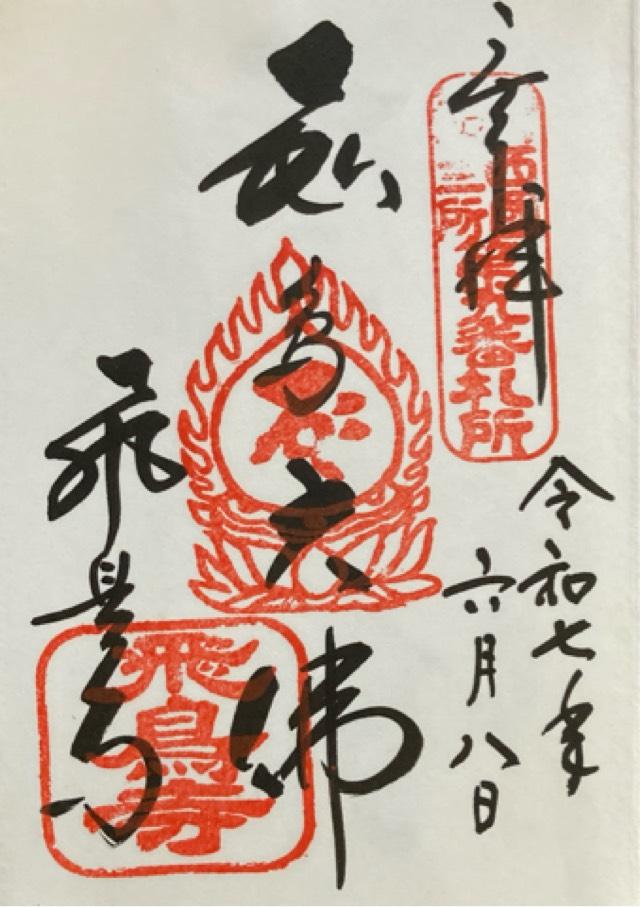 奉拝
第九番札所
令和七年
六月八日
飛鳥大佛
飛鳥寺
飛鳥寺